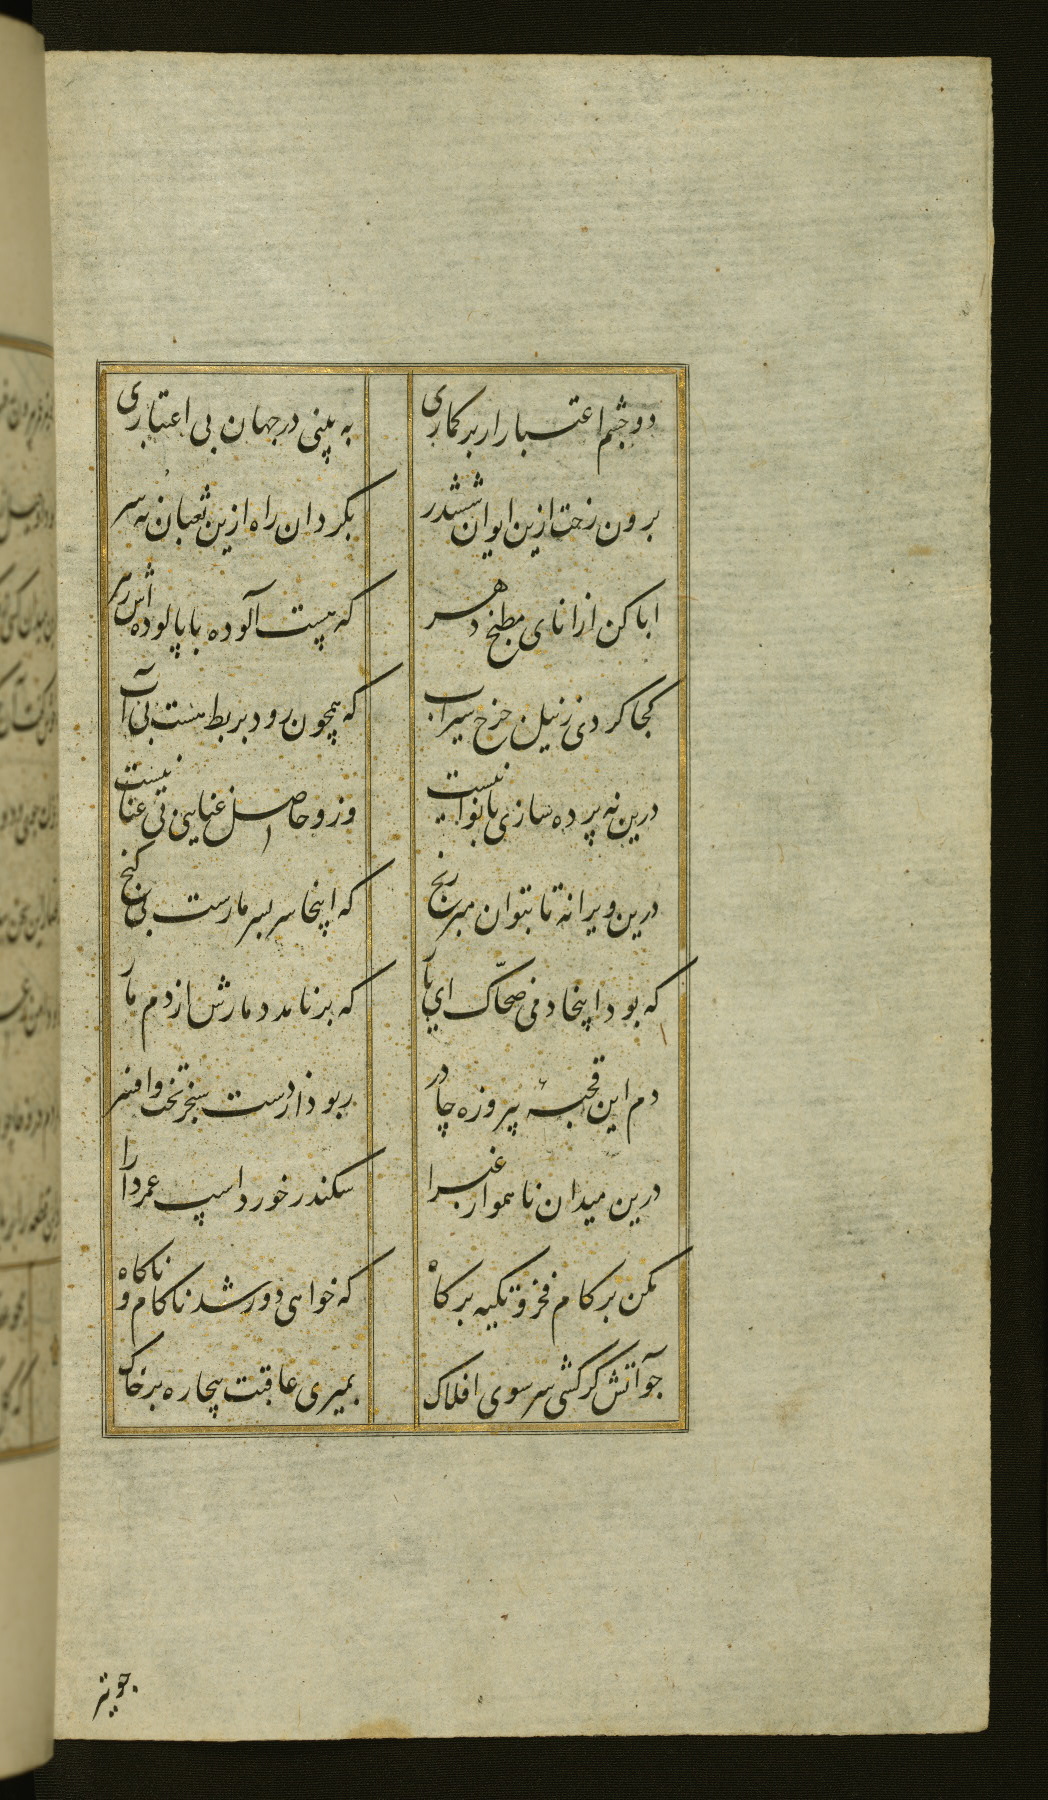 دو چشم اعتبار ار برکماری به بینی در جهان بی اعتباری
برون رخت ازین ایوان ششدر بکردان راه ازین ثعبان نه سر
ابا کن از اناى مطبخ دهر که هست آلوده با پالوده اش زهر
کجا کردی ز نیل چرخ سیراب که همچون رود بربط هست بی آب
درین نه پرده سازی با نوا نیست وزو حاصل غنایی بی عنا نیست
درین ویرانه تا بتوان مبر رنج که اینجا سربسر مارست بی کنج
که بود اینجا دمی ضحاک ای یار که بر نامد دمارش از دم مار
دم این قحبهٔ پیروزه چادر ربود از دست سنجر تخت و افسر
درین میدان ناهموار غبرا سکندر خورد اسپ عمر دارا
مکن بر کام فخر و تکیه بر کاه که خواهی دور شد ناکام و ناکاه
چو آتش کر کشی سر سوی افلاک بمیری عاقبت بیچاره بر خاک